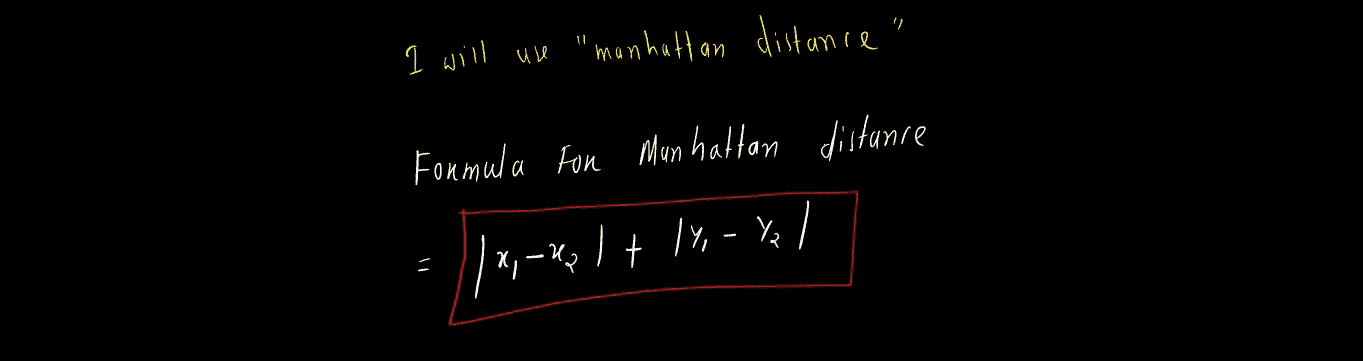 I will use "manhattan distance"
Formula For Manhattan distance
= |x₁-x₂| + |y₁ - y₂|